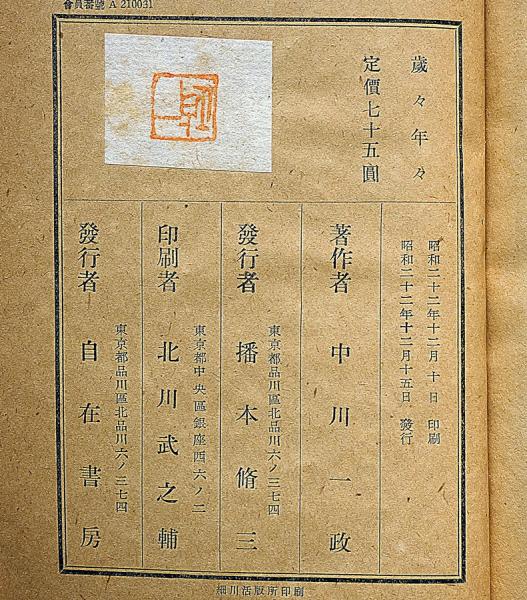 會員番號 A 210031
歲々年々
定價七十五圓
昭和二十二年十二月 十日 印刷
昭和二十二年十二月十五日 發行
著作者 中川一政
東京都品川區北品川六ノ三七四
發行者 播本脩三
東京都中央區銀座西六ノ二
印刷者 北川武之輔
東京都品川區北品川六ノ三七四
發行者 自在書房
細川活版所印刷